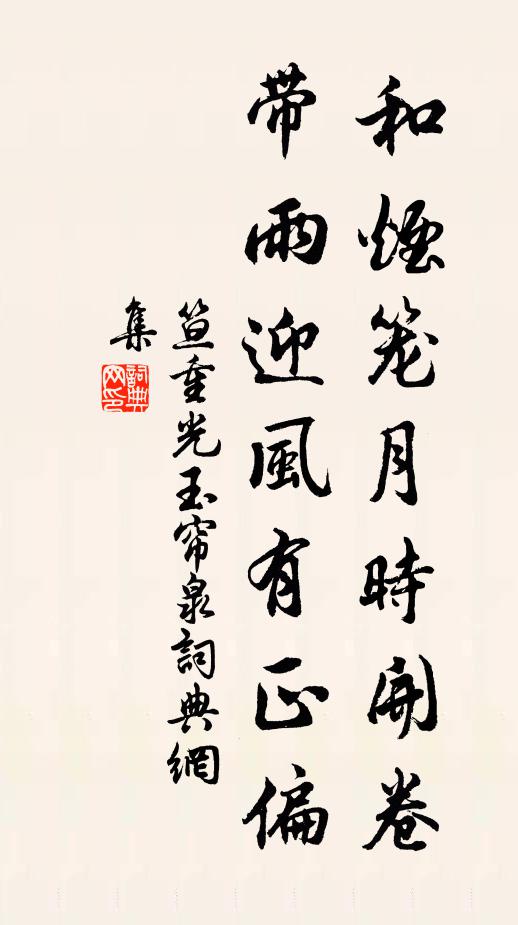 和煙笼月時開卷
帶雨迎風有正偏
笪重光玉帘泉詞典網
集
詞典网印